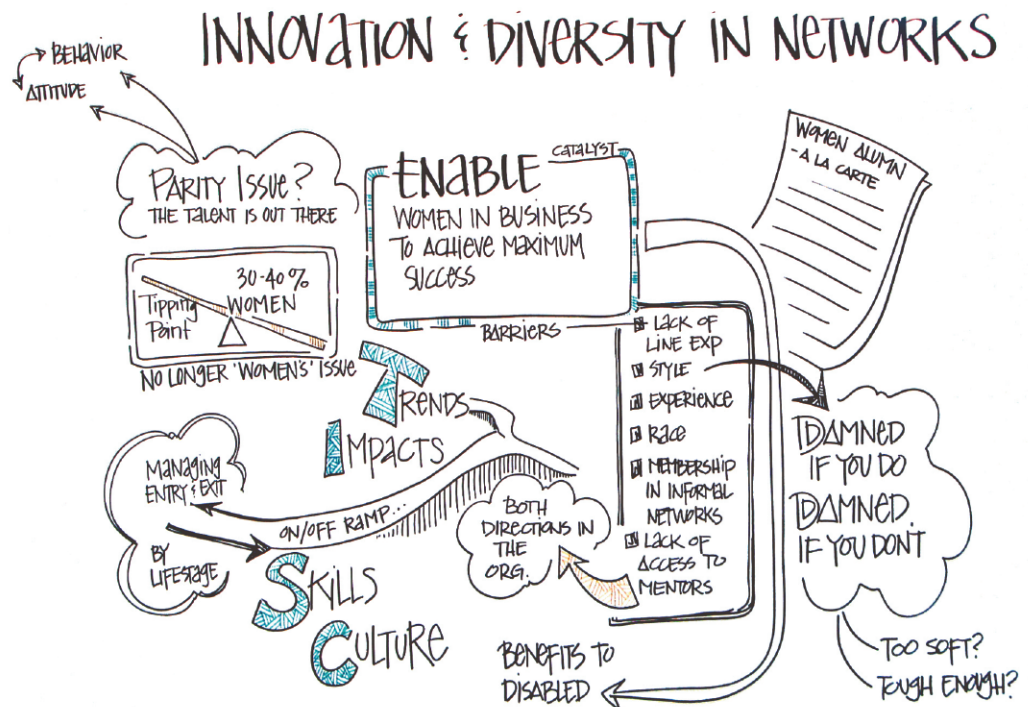 INNOVATION & DIVERSITY IN NETWORKS
BEHAVIOR
ATTITUDE
PARITY ISSUE?
THE TALENT IS OUT THERE
30-40%
Tipping WOMEN
Point
NO LONGER 'WOMEN'S' ISSUE
CATALYST
ENABLE
WOMEN IN BUSINESS
TO ACHIEVE MAXIMUM
SUCCESS
BARRIERS
LACK OF
LINE EXP
STYLE
EXPERIENCE
RACE
MEMBERSHIP
IN INFORMAL
NETWORKS
LACK OF
ACCESS TO
MENTORS
WOMEN ALUMN
- A LA CARTE
DAMNED
IF YOU DO
DAMNED
IF YOU DON'T
TOO SOFT?
TOUGH ENOUGH?
TRENDS
IMPACTS
MANAGING
ENTRY & EXIT
BY
LIFESTAGE
ON/OFF RAMP...
SKILLS
CULTURE
BOTH
DIRECTIONS IN
THE
ORG.
BENEFITS TO
DISABLED